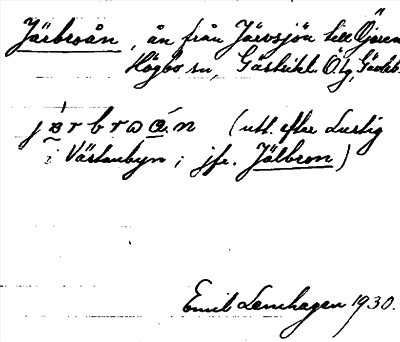 Järbroån, ån från Järvsjön till Öjaren
Högbo sn, Gästrikl. Ö. tg, Gävleb.
(utt. efter Lustig
i Västanbyn; jfr. Jälbron)
Emil Lamhagen 1930.